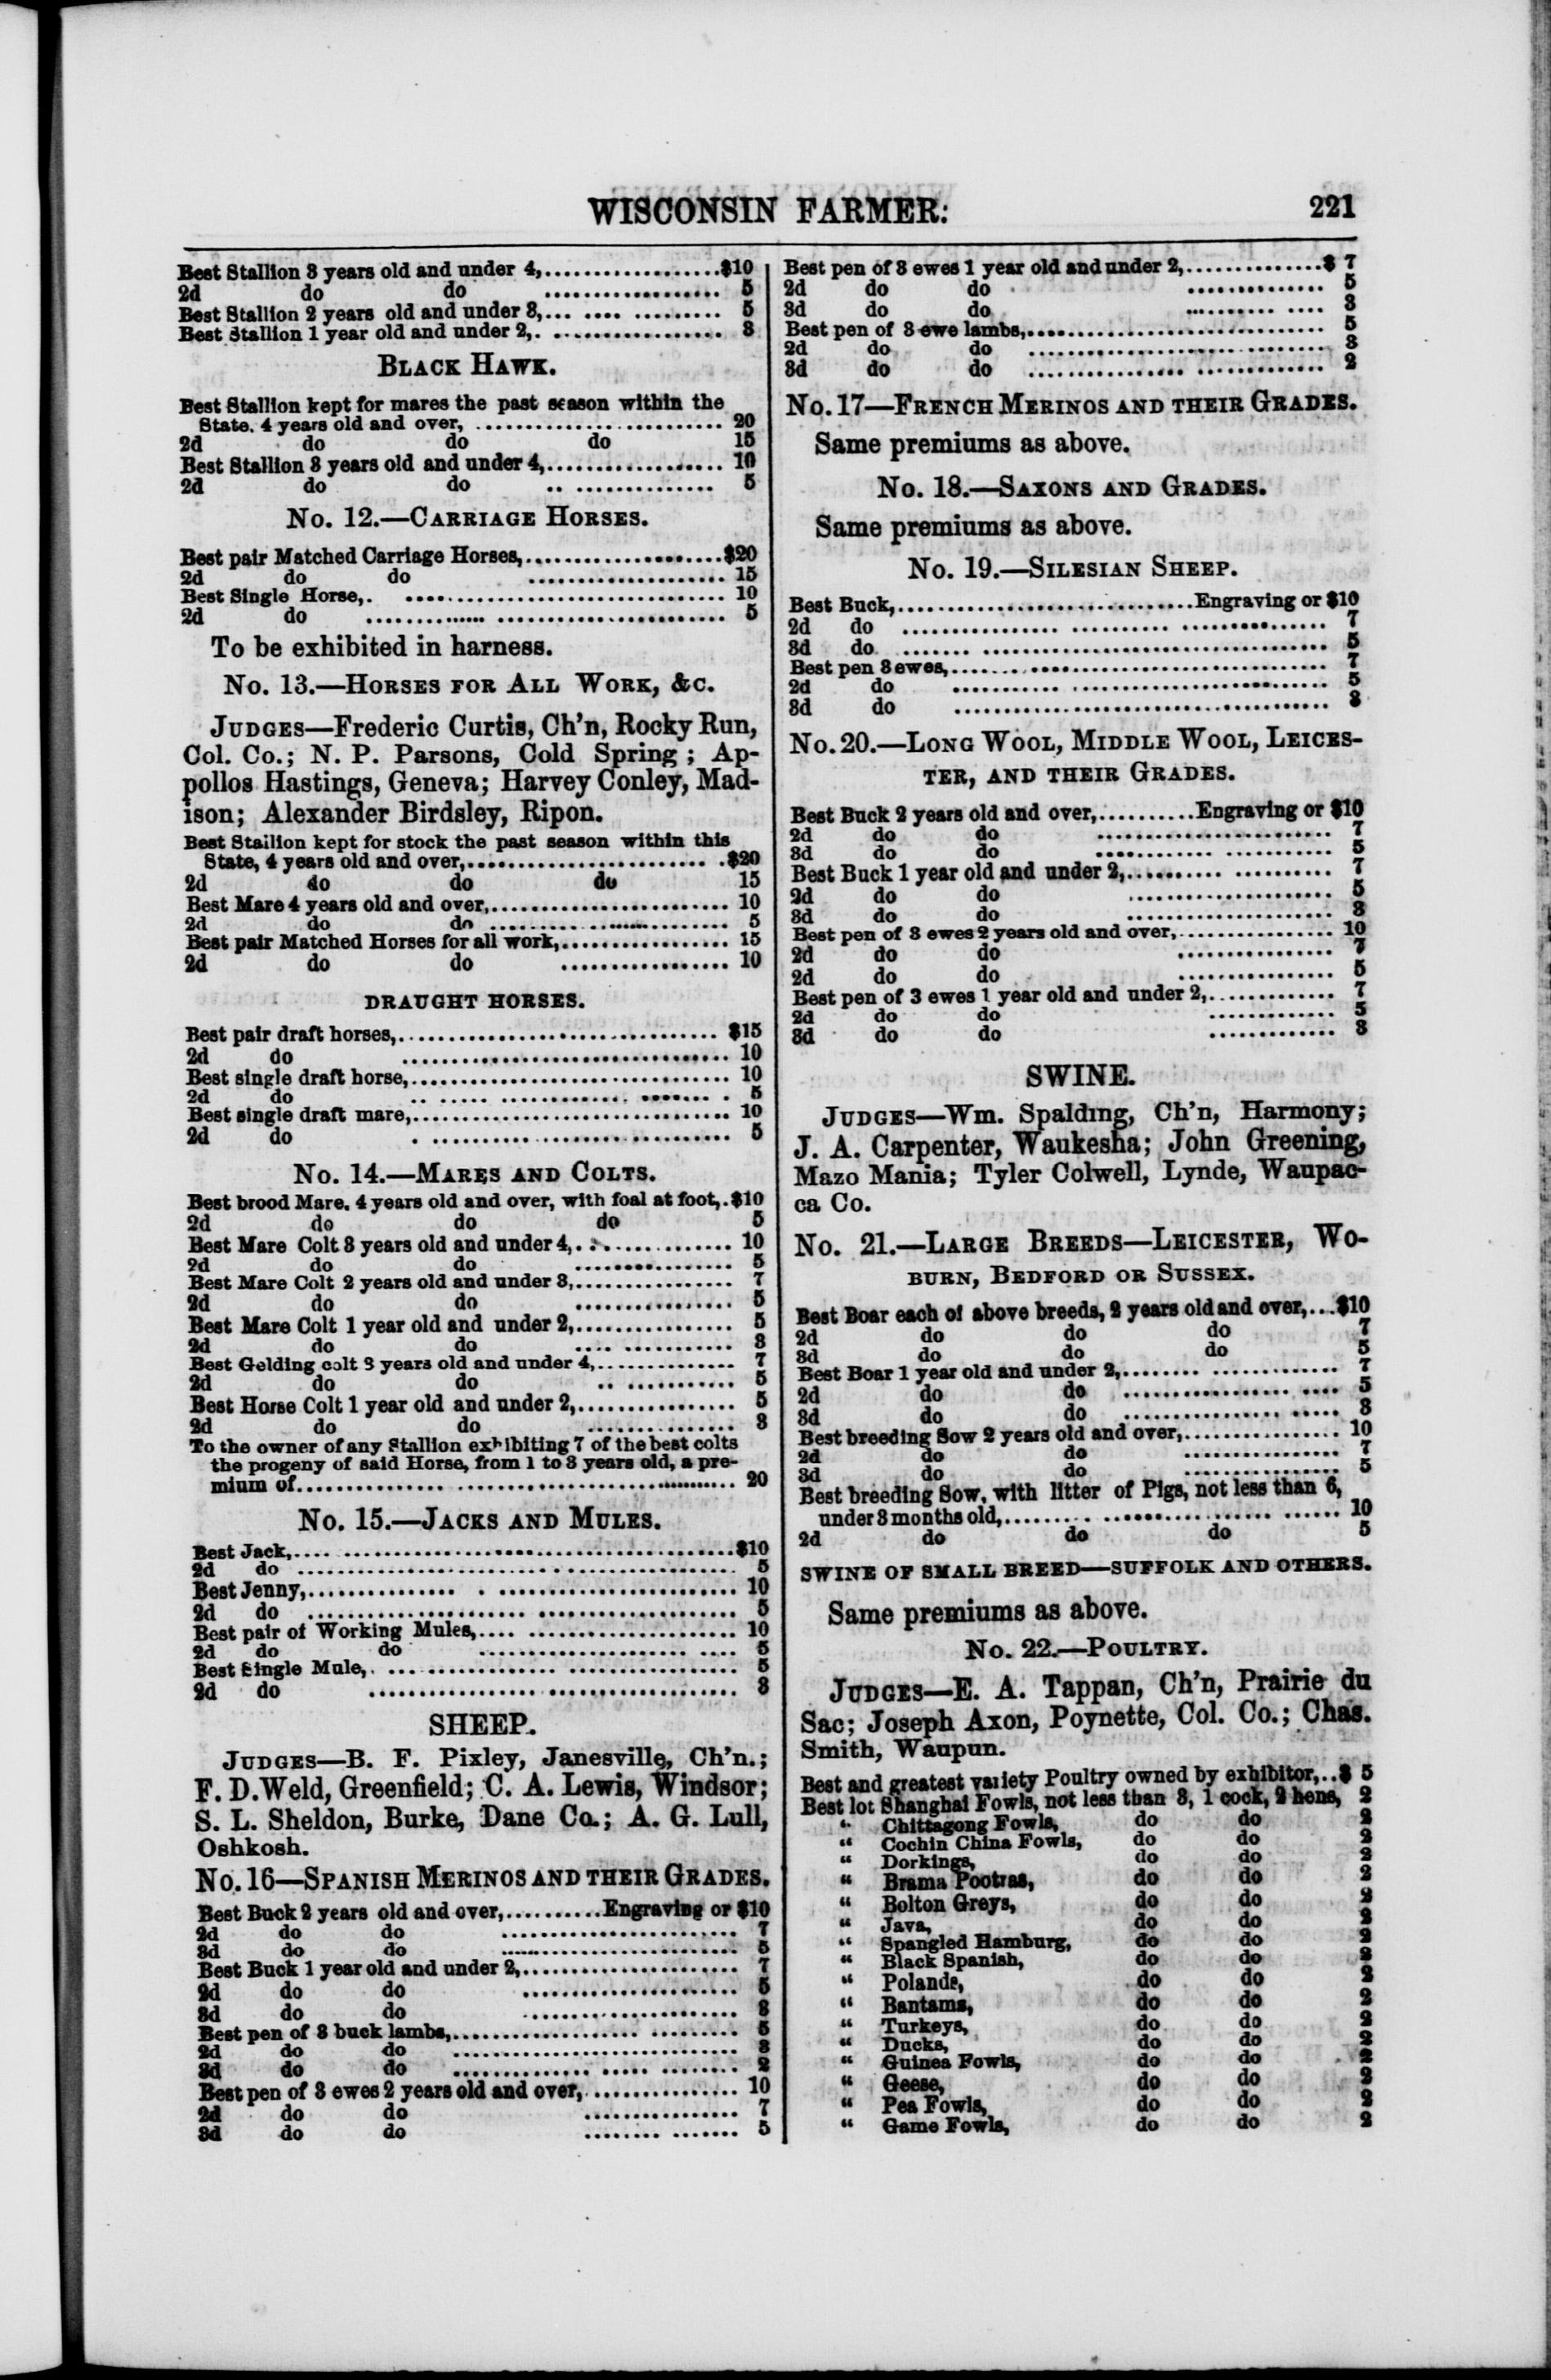 WISCONSIN FARMER. 221
Best Stallion 3 years old and under 4,..................$10
2d do do .................. 5
Best Stallion 2 years old and under 3,... .... ......... 5
Best Stallion 1 year old and under 2,. ................. 3
BLACK HAWK.
Best Stallion kept for mares the past season within the
State, 4 years old and over, ........................ 20
2d do do do 15
Best Stallion 3 years old and under 4,.................. 10
2d do do .. .............. 5
No. 12.—CARRIAGE HORSES.
Best pair Matched Carriage Horses,....................$20
2d do do .................... 15
Best Single Horse,. ................................ 10
2d do .................................... 5
To be exhibited in harness.
No. 13.—HORSES FOR ALL WORK, &C.
JUDGES—Frederic Curtis, Ch'n, Rocky Run,
Col. Co.; N. P. Parsons, Cold Spring; Ap-
pollos Hastings, Geneva; Harvey Conley, Mad-
ison; Alexander Birdsley, Ripon.
Best Stallion kept for stock the past season within this
State, 4 years old and over,........................ .$20
2d do do do 15
Best Mare 4 years old and over,........................ 10
2d do do ........................ 5
Best pair Matched Horses for all work,................. 15
2d do do ................. 10
DRAUGHT HORSES.
Best pair draft horses,................................ $15
2d do ................................ 10
Best single draft horse,................................ 10
2d do .. ..... ............. ....... . 5
Best single draft mare,................................ 10
2d do . .............................. 5
No. 14.—MARES AND COLTS.
Best brood Mare, 4 years old and over, with foal at foot,.$10
2d do do do 5
Best Mare Colt 3 years old and under 4,................ 10
2d do do ................ 5
Best Mare Colt 2 years old and under 3,................ 7
2d do do ................ 5
Best Mare Colt 1 year old and under 2,................ 5
2d do do .... ............ 3
Best Gelding colt 3 years old and under 4,.............. 7
2d do do .. ............ 5
Best Horse Colt 1 year old and under 2,................ 5
2d do do ............... 3
To the owner of any Stallion exhibiting 7 of the best colts
the progeny of said Horse, from 1 to 3 years old, a pre-
mium of............................................ 20
No. 15.—JACKS AND MULES.
Best Jack,............................................$10
2d do ............................................ 5
Best Jenny,............... . ........................ 10
2d do ............................................ 5
Best pair of Working Mules,.... ..................... 10
2d do do ..................... .... 5
Best Single Mule,. ................................ 5
2d do .................................... 3
SHEEP.
JUDGES—B. F. Pixley, Janesville, Ch'n.;
F. D. Weld, Greenfield; C. A. Lewis, Windsor;
S. L. Sheldon, Burke, Dane Co.; A. G. Lull,
Oshkosh.
No. 16—SPANISH MERINOS AND THEIR GRADES.
Best Buck 2 years old and over,..........Engraving or $10
2d do do ........................ 7
3d do do ........................ 5
Best Buck 1 year old and under 2,...................... 7
2d do do ...................... 5
3d do do ...................... 3
Best pen of 3 buck lambs,................... ......... 5
2d do do ............................ 3
3d do do .............. ..... ........ 2
Best pen of 3 ewes 2 years old and over,................ 10
2d do do ................ 7
3d do do ........ ....... 5
Best pen of 3 ewes 1 year old and under 2,..............$ 7
2d do do .............. 5
3d do do .......... .... 3
Best pen of 3 ewe lambs,.............................. 5
2d do do .............................. 3
3d do do ................ ............. 2
No. 17—FRENCH MERINOS AND THEIR GRADES.
Same premiums as above.
No. 18.—SAXONS AND GRADES.
Same premiums as above.
No. 19.—SILESIAN SHEEP.
Best Buck,..............................Engraving or $10
2d do ................ .......... ............... 7
3d do ....... ................................... 5
Best pen 3 ewes,...................................... 7
2d do ...................................... 5
3d do ...................................... 3
No. 20.—LONG WOOL, MIDDLE WOOL, LEICES-
TER, AND THEIR GRADES.
Best Buck 2 years old and over,..........Engraving or $10
2d do do ........................ 7
3d do do ............ ........... 5
Best Buck 1 year old and under 2,.......... .......... 7
2d do do ..................... 5
3d do do ..................... 3
Best pen of 3 ewes 2 years old and over,................ 10
2d do do ................ 7
2d do do ................ 5
Best pen of 3 ewes 1 year old and under 2,............. 7
2d do do ............. 5
3d do do ............. 3
SWINE.
JUDGES—Wm. Spalding, Ch'n, Harmony;
J. A. Carpenter, Waukesha; John Greening,
Mazo Mania; Tyler Colwell, Lynde, Waupac-
ca Co.
No. 21.—LARGE BREEDS—LEICESTER, WO-
BURN, BEDFORD OR SUSSEX.
Best Boar each of above breeds, 2 years old and over,...$10
2d do do do 7
3d do do do 5
Best Boar 1 year old and under 2,........ ............. 7
2d do do ................. .... 5
3d do do ................ ..... 3
Best breeding Sow 2 years old and over,................ 10
2d do do ................ 7
3d do do ................ 5
Best breeding Sow, with litter of Pigs, not less than 6,
under 3 months old,......... ................. ...... 10
2d do do do 5
SWINE OF SMALL BREED—SUFFOLK AND OTHERS.
Same premiums as above.
No. 22.—POULTRY.
JUDGES—E. A. Tappan, Ch'n, Prairie du
Sac; Joseph Axon, Poynette, Col. Co.; Chas.
Smith, Waupun.
Best and greatest variety Poultry owned by exhibitor,..$ 5
Best lot Shanghai Fowls, not less than 3, 1 cock, 2 hens, 2
" Chittagong Fowls, do do 2
" Cochin China Fowls, do do 2
" Dorkings, do do 2
" Brama Pootras, do do 2
" Bolton Greys, do do 2
" Java, do do 2
" Spangled Hamburg, do do 2
" Black Spanish, do do 2
" Polands, do do 2
" Bantams, do do 2
" Turkeys, do do 2
" Ducks, do do 2
" Guinea Fowls, do do 2
" Geese, do do 2
" Pea Fowls, do do 2
" Game Fowls, do do 2